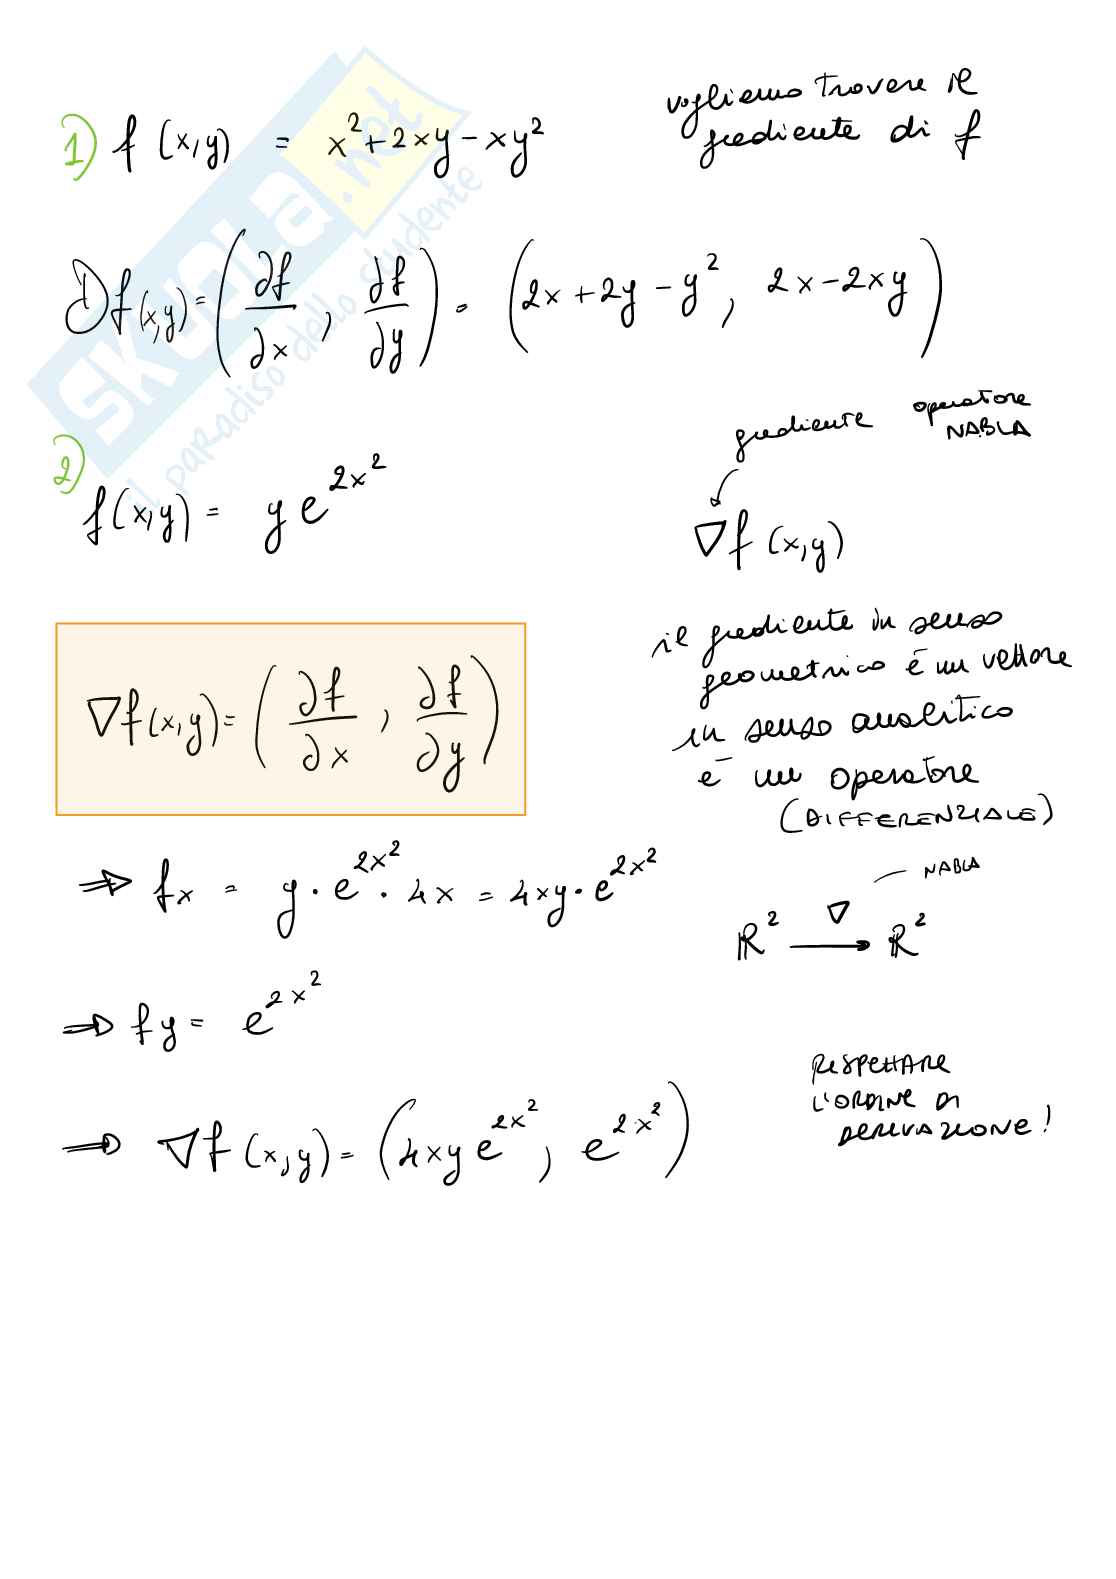 vogliamo trovare il
gradiente di f
1) f (x,y) = x²+2xy-xy²
Df(x,y) = (∂f/∂x , ∂f/∂y) = (2x+2y-y², 2x-2xy)
gradiente operatore
NABLA
2)
f(x,y) = y e^{2x²}
∇f (x,y)
il gradiente in senso
geometrico è un vettore
in senso analitico
è un operatore
(DIFFERENZIALE)
∇f(x,y) = (∂f/∂x , ∂f/∂y)
⇒ fx = y · e^{2x²} · 4x = 4xy · e^{2x²}
NABLA
∇
ℝ² → ℝ²
⇒ fy = e^{2x²}
RISPETTARE
L'ORDINE DI
DERIVAZIONE!
⇒ ∇f (x,y) = (4xy e^{2x²}, e^{2x²})
SKUOLA.net
il paradiso dello studente